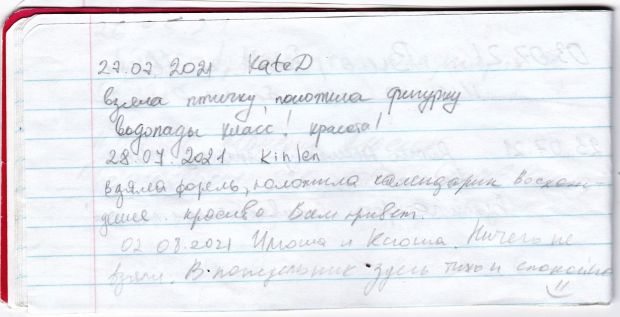 27.07.2021 KateD
взяла птичку, положила фигурку
водопады класс! красота!
28.07.2021 Kinlen
взяла форель, положила календарик Восхож-
дение. красиво. Всем привет.
02 08.2021 и Ксюша. Ничего не
взяли. В понедельник здесь тихо и спокойно